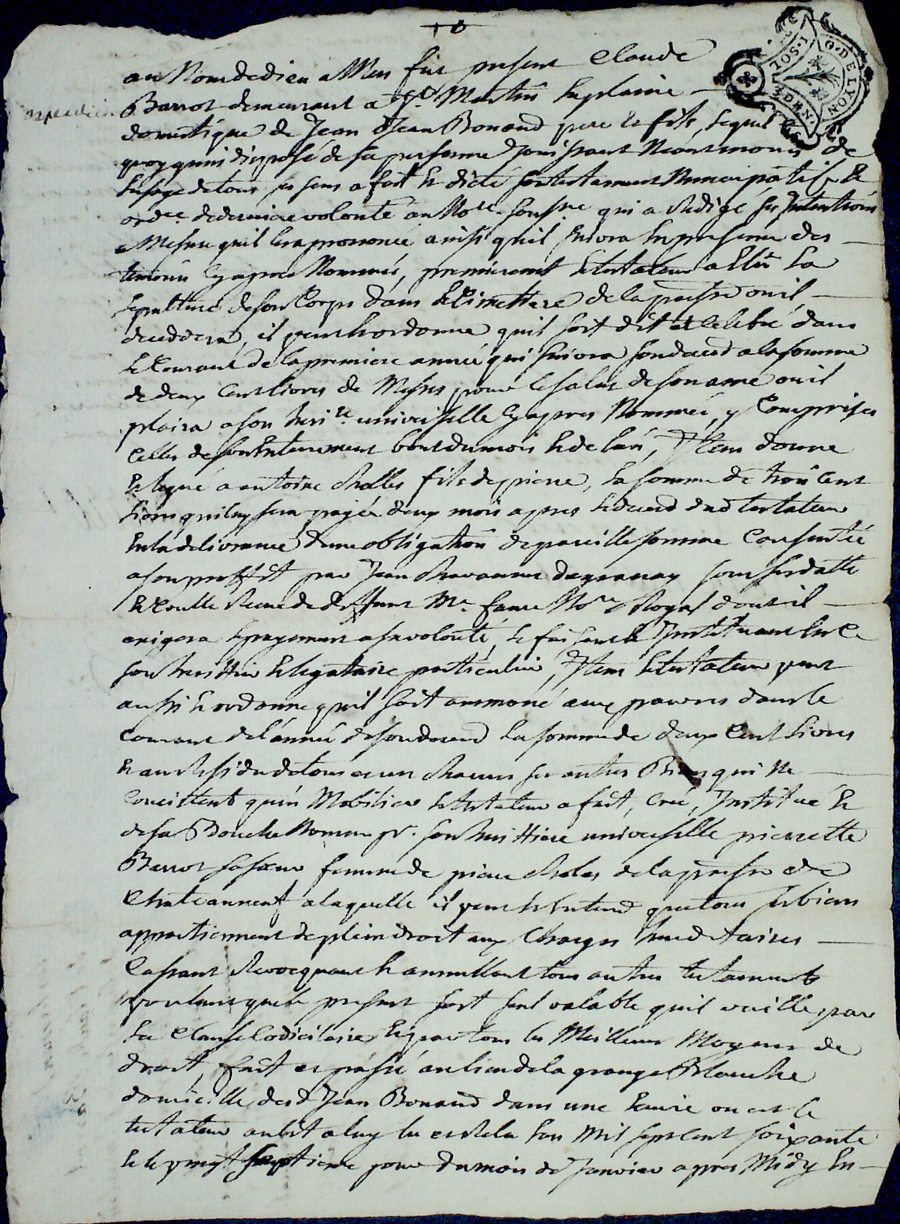 au Nom de dieu amen fut present Claude
Barrot demeurant a St Martin la plaine
expedié
G. DE LYON
1. SOL
domestique de Jean & Jean Bonand pere et fils, lequel
quoy quindisposé de sa personne jouissant neantmoins de
de tous ses sens a fait et dicté son testament nuncupatif et
ordce de derniere volonté au Nore soussné qui a redigé ses intentions
a mesure quil les a prononcé ainsi quil suivra en presence des
temoins cy apres Nommés, premierement le testateur a Elû la
sepulture de son Corps dans le Cimetiere de la paroisse ou il
decedera, il veut et ordonne quil soit dit et celebré dans
le Courant de la premiere année qui suivra son deced a la somme
de deux Cent livres de Messes pour le salut de son ame ou il
plaira a son heritre universelle cy apres Nommée, y Comprises
Celles de son Enterrement bout du mois et de l'an, Item donne
et legue a antoine Challes fils de pierre, la somme de trois Cent
livres quil luy sera payée deux mois apres le deced dud testateur
en la delivrance d'une obligation de pareille somme Consentie
a son proffit par Jean Chavanne sous sa datte
et Contle receue de deffunt Me faure Nore Royal dont il
exigera le payement a sa volonté, le faisant & Instituant en Ce
son heritier et legataire particulier, Item le testateur veut
aussi et ordonne quil soit aumoné aux pauvres dans le
Courant de l'année de son deced la somme de deux Cent livres
et au residu de tous et un chacuns ses autres Biens qui ne
Concistent qu'en Mobilier le testateur a fait, Créé, Institué et
de sa Bouche Nommé pr. son heritiere universelle pierrette
Barrot sa soeur femme de pierre Chales de la paroisse de
Chateauneuf a laquelle il veut et Entend que tous ses biens
appartiennent de plein droit aux Charges hereditaires
Cassant Revocquant et annullant tous autres testaments
voulant que le present soit seul valable quil vaille par
la Clause Codicilaire et par tous les Meilleurs Moyens de
droit, fait et passé au lieu de la grange Blanche
domicille dud Jean Bonand dans une Ecurie ou est le
testateur au lit a luy lu et relu l'an Mil sept cent soixante
et le vingt septieme jour du mois de Janvier apres Midy En